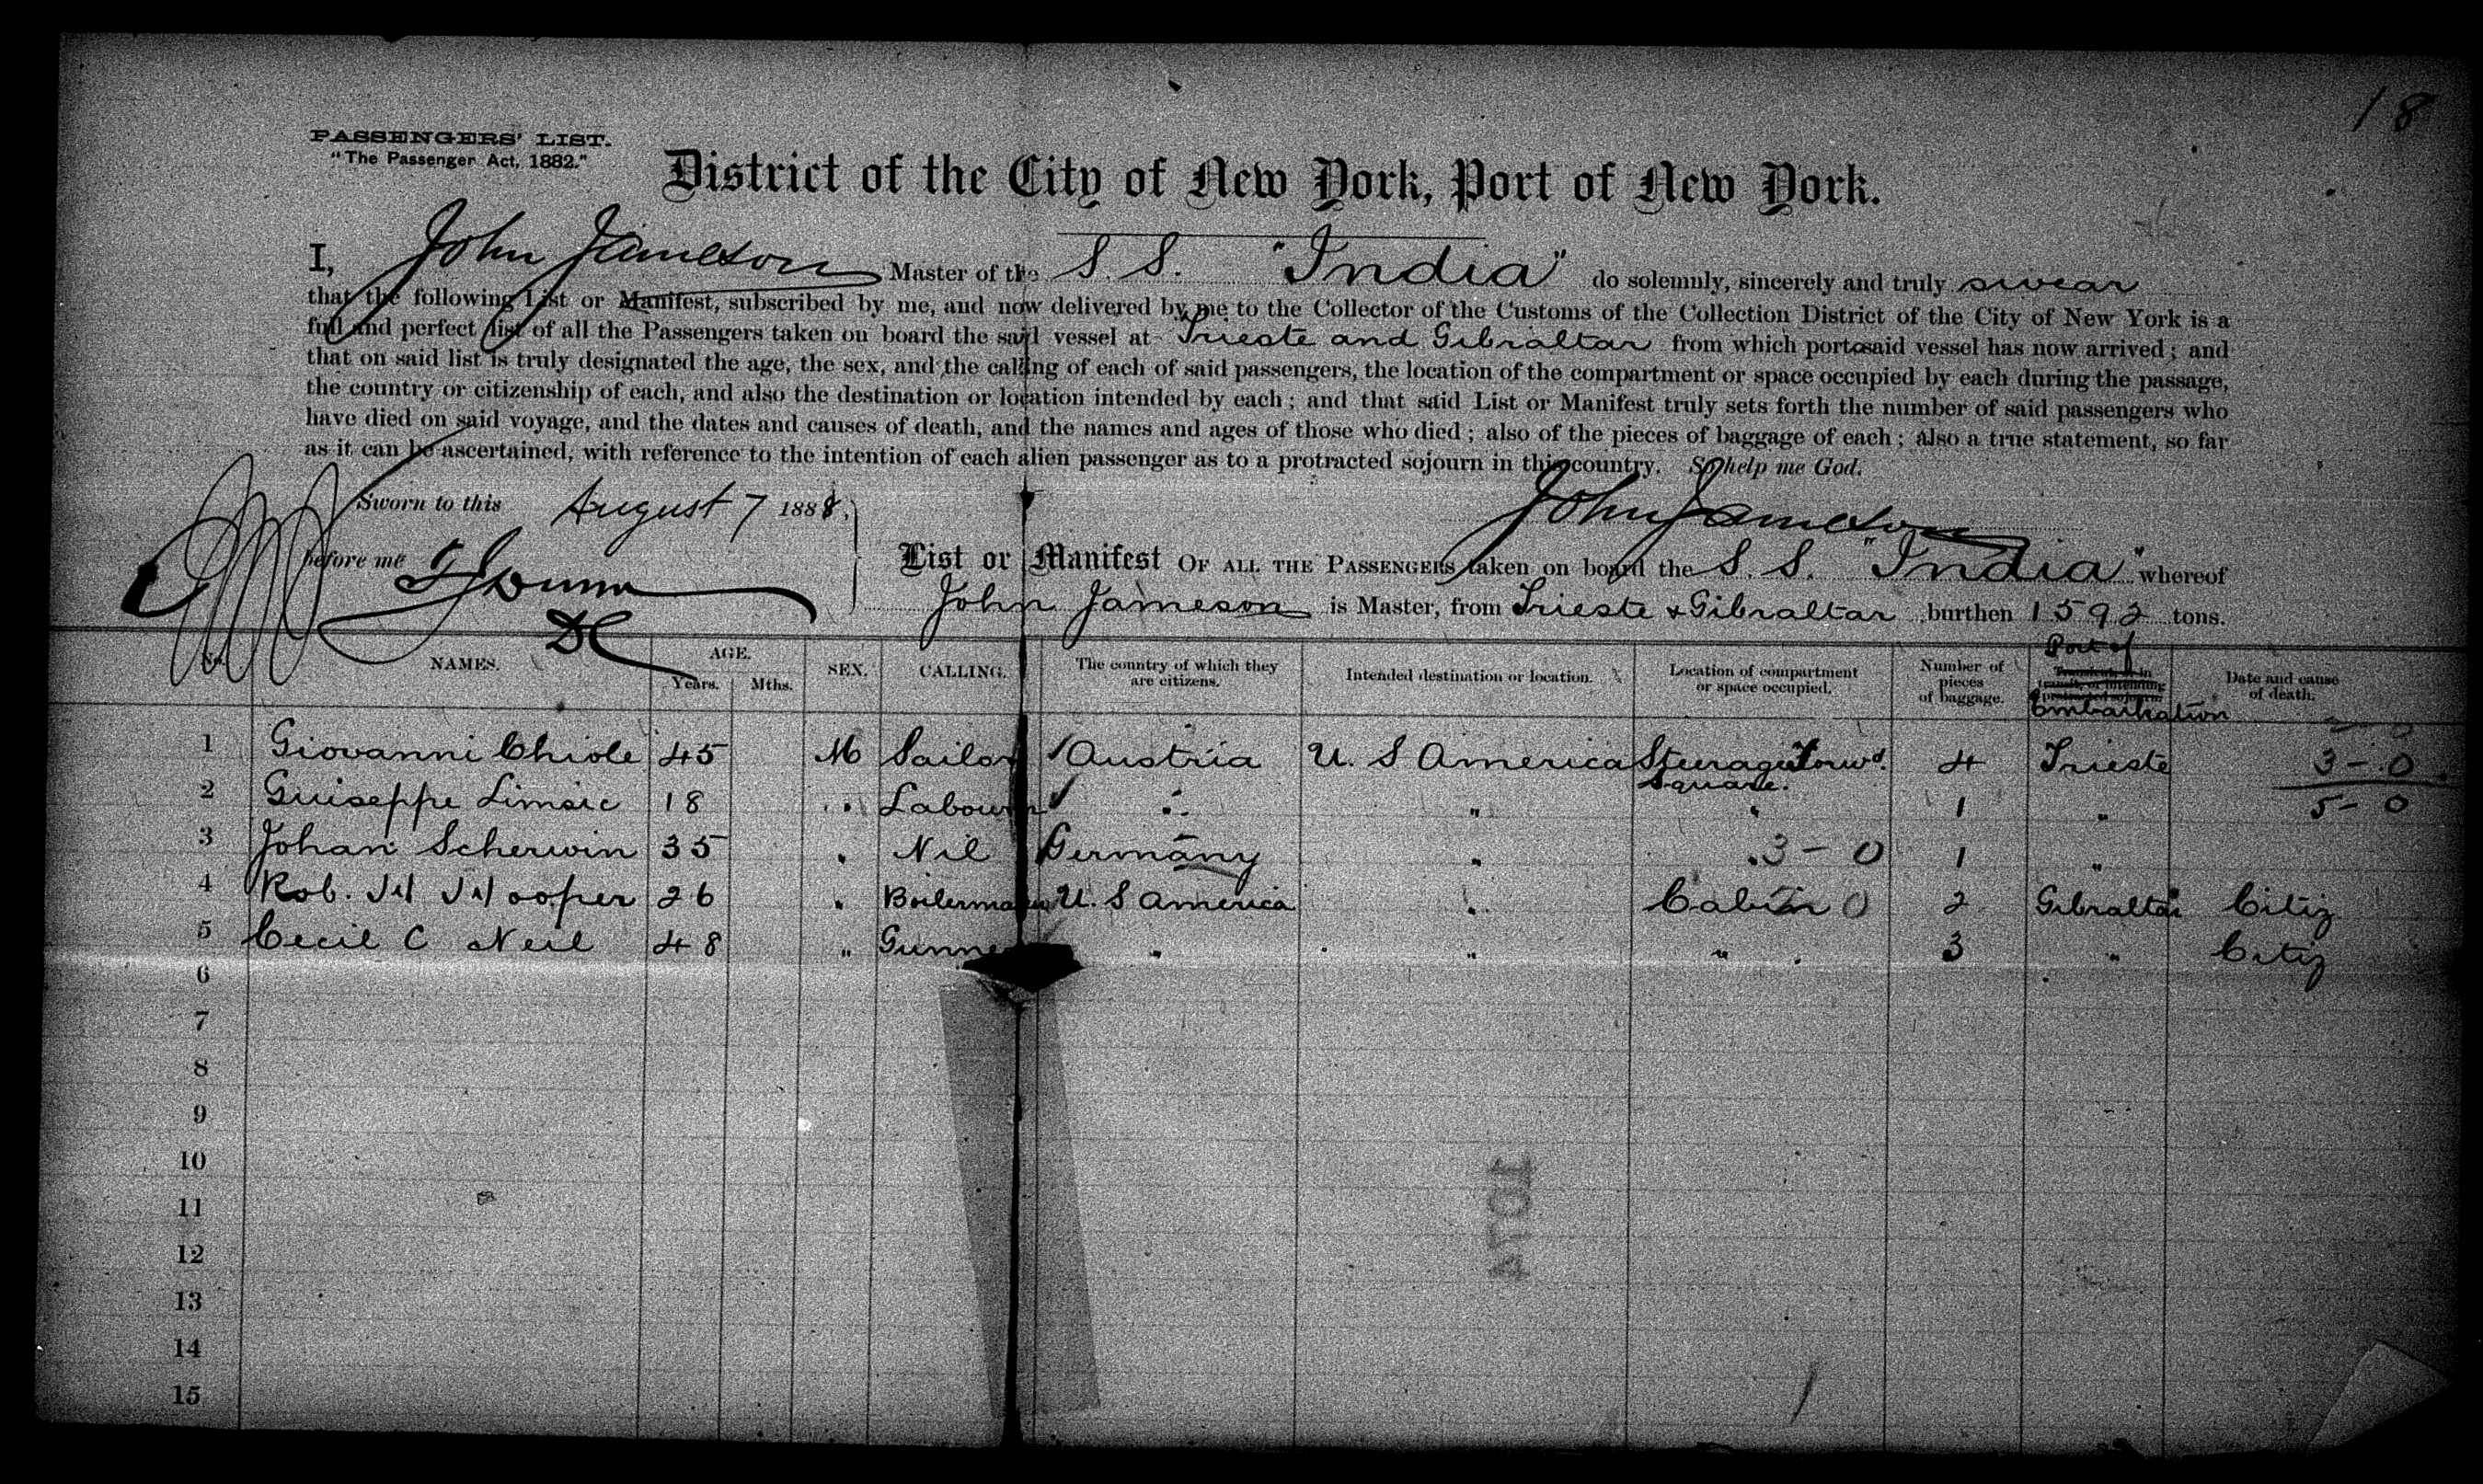 18
PASSENGERS' LIST.
"The Passenger Act, 1882."
District of the City of New York, Port of New York.
I, John Jameson Master of the S. S. "India" do solemnly, sincerely and truly swear
that the following List or Manifest, subscribed by me, and now delivered by me to the Collector of the Customs of the Collection District of the City of New York is a
full and perfect list of all the Passengers taken on board the said vessel at Trieste and Gibraltar from which ports said vessel has now arrived; and
that on said list is truly designated the age, the sex, and the calling of each of said passengers, the location of the compartment or space occupied by each during the passage,
the country or citizenship of each, and also the destination or location intended by each; and that said List or Manifest truly sets forth the number of said passengers who
have died on said voyage, and the dates and causes of death, and the names and ages of those who died; also of the pieces of baggage of each; also a true statement, so far
as it can be ascertained, with reference to the intention of each alien passenger as to a protracted sojourn in this country. So help me God.
Sworn to this August 7 1888. John Jameson
before me
List or Manifest OF ALL THE PASSENGERS taken on board the S. S. "India" whereof
John Jameson is Master, from Trieste & Gibraltar burthen 1592 tons.
No. NAMES. AGE. Years. Mths. SEX. CALLING. The country of which they are citizens. Intended destination or location. Location of compartment or space occupied. Number of pieces of baggage. Port of Embarkation Date and cause of death.
1 Giovanni Chiole 45 M Sailor Austria U. S America Steerage Forwd. Square. 4 Trieste 3 - 0
2 Guiseppe Limsic 18 " Labourer " " " 1 " 5 - 0
3 Johan Scherwin 35 " Nil Germany " " 3 - 0 1 "
4 Rob. H Hooper 26 " Boilermaker U. S America " Cabin 0 2 Gibraltar Citiz
5 Cecil C Neil 48 " Gunner " " " 3 " Citiz
6
7
8
9
10
11
12
13
14
15